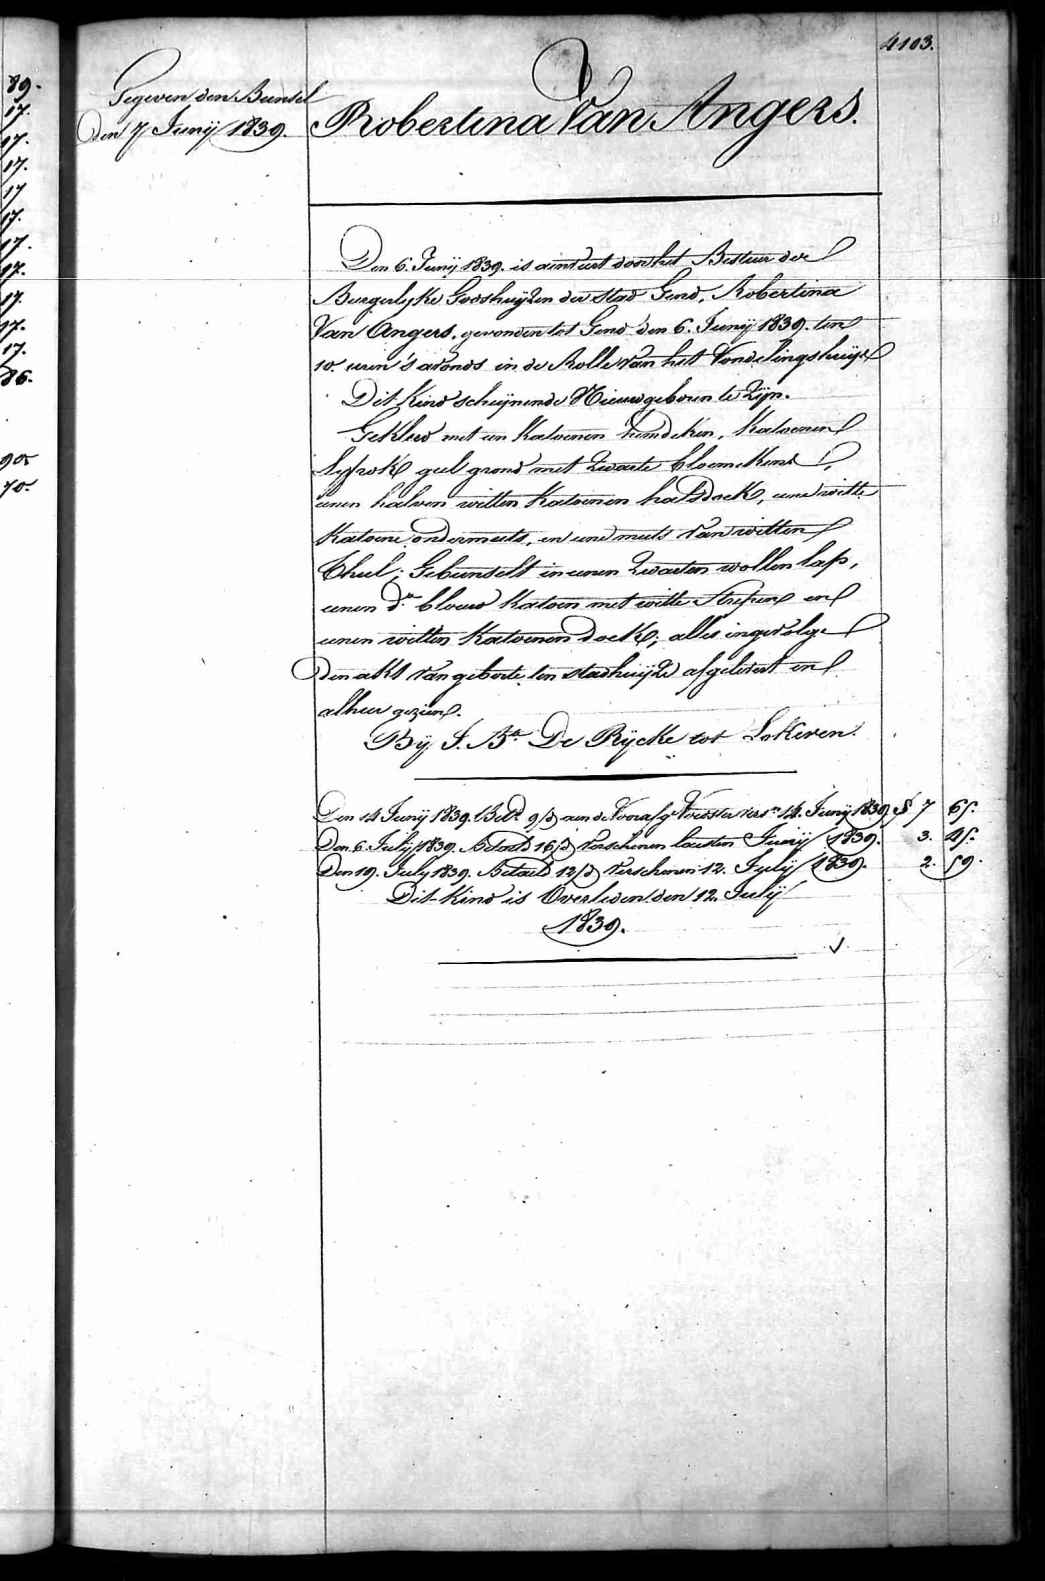 89.
17.
17.
17.
17
17.
17.
17.
17.
17.
17.
86.
90
70.
4103.
Gegeven den Bunsel
Den 7 Junij 1839.
Robertina Van Angers.
Den 6. Junij 1839. is aenveert door het Bestuur der
Burgerlyke Godshuijzen der stad Gend, Robertina
Van Angers. gevonden tot Gend den 6. Junij 1839. ten
10. uren 's avonds in de Rolle van het Vondelingshuijs
Dit kind scheijnende Nieuwgeboren te Zijn.
Gekleed met een Katoenen hemdeken, Katoenen
Lyfrok geel grond met zwarte bloemekens,
eenen halven witten Katoenen halsdoek, eene witte
Katoene ondermuts, en eene muts van witten
Thul; Gebunselt in eenen Zwarten wollen lap,
eenen d.en blauw Katoen met witte Strepen en
eenen witten Katoenen doek; alles ingevolge
den akt van geboorte ten stadhuijze afgelevert en
alhier gezien.
Bij J. B.te De Rycke tot Lokeren.
Den 14 Junij 1839. Bet.d 9/d aen de Voorafg. Voedster vers.n 14. Junij 1839 § 7 65.
Den 6. July 1839. Betaeld 16/d Verschenen laesten Junij 1839. 3. 45.
Den 19. July 1839. Betaeld 12/d Verschenen 12. Julij 1839. 2. 59.
Dit Kind is Overleden den 12. Julij
1839.